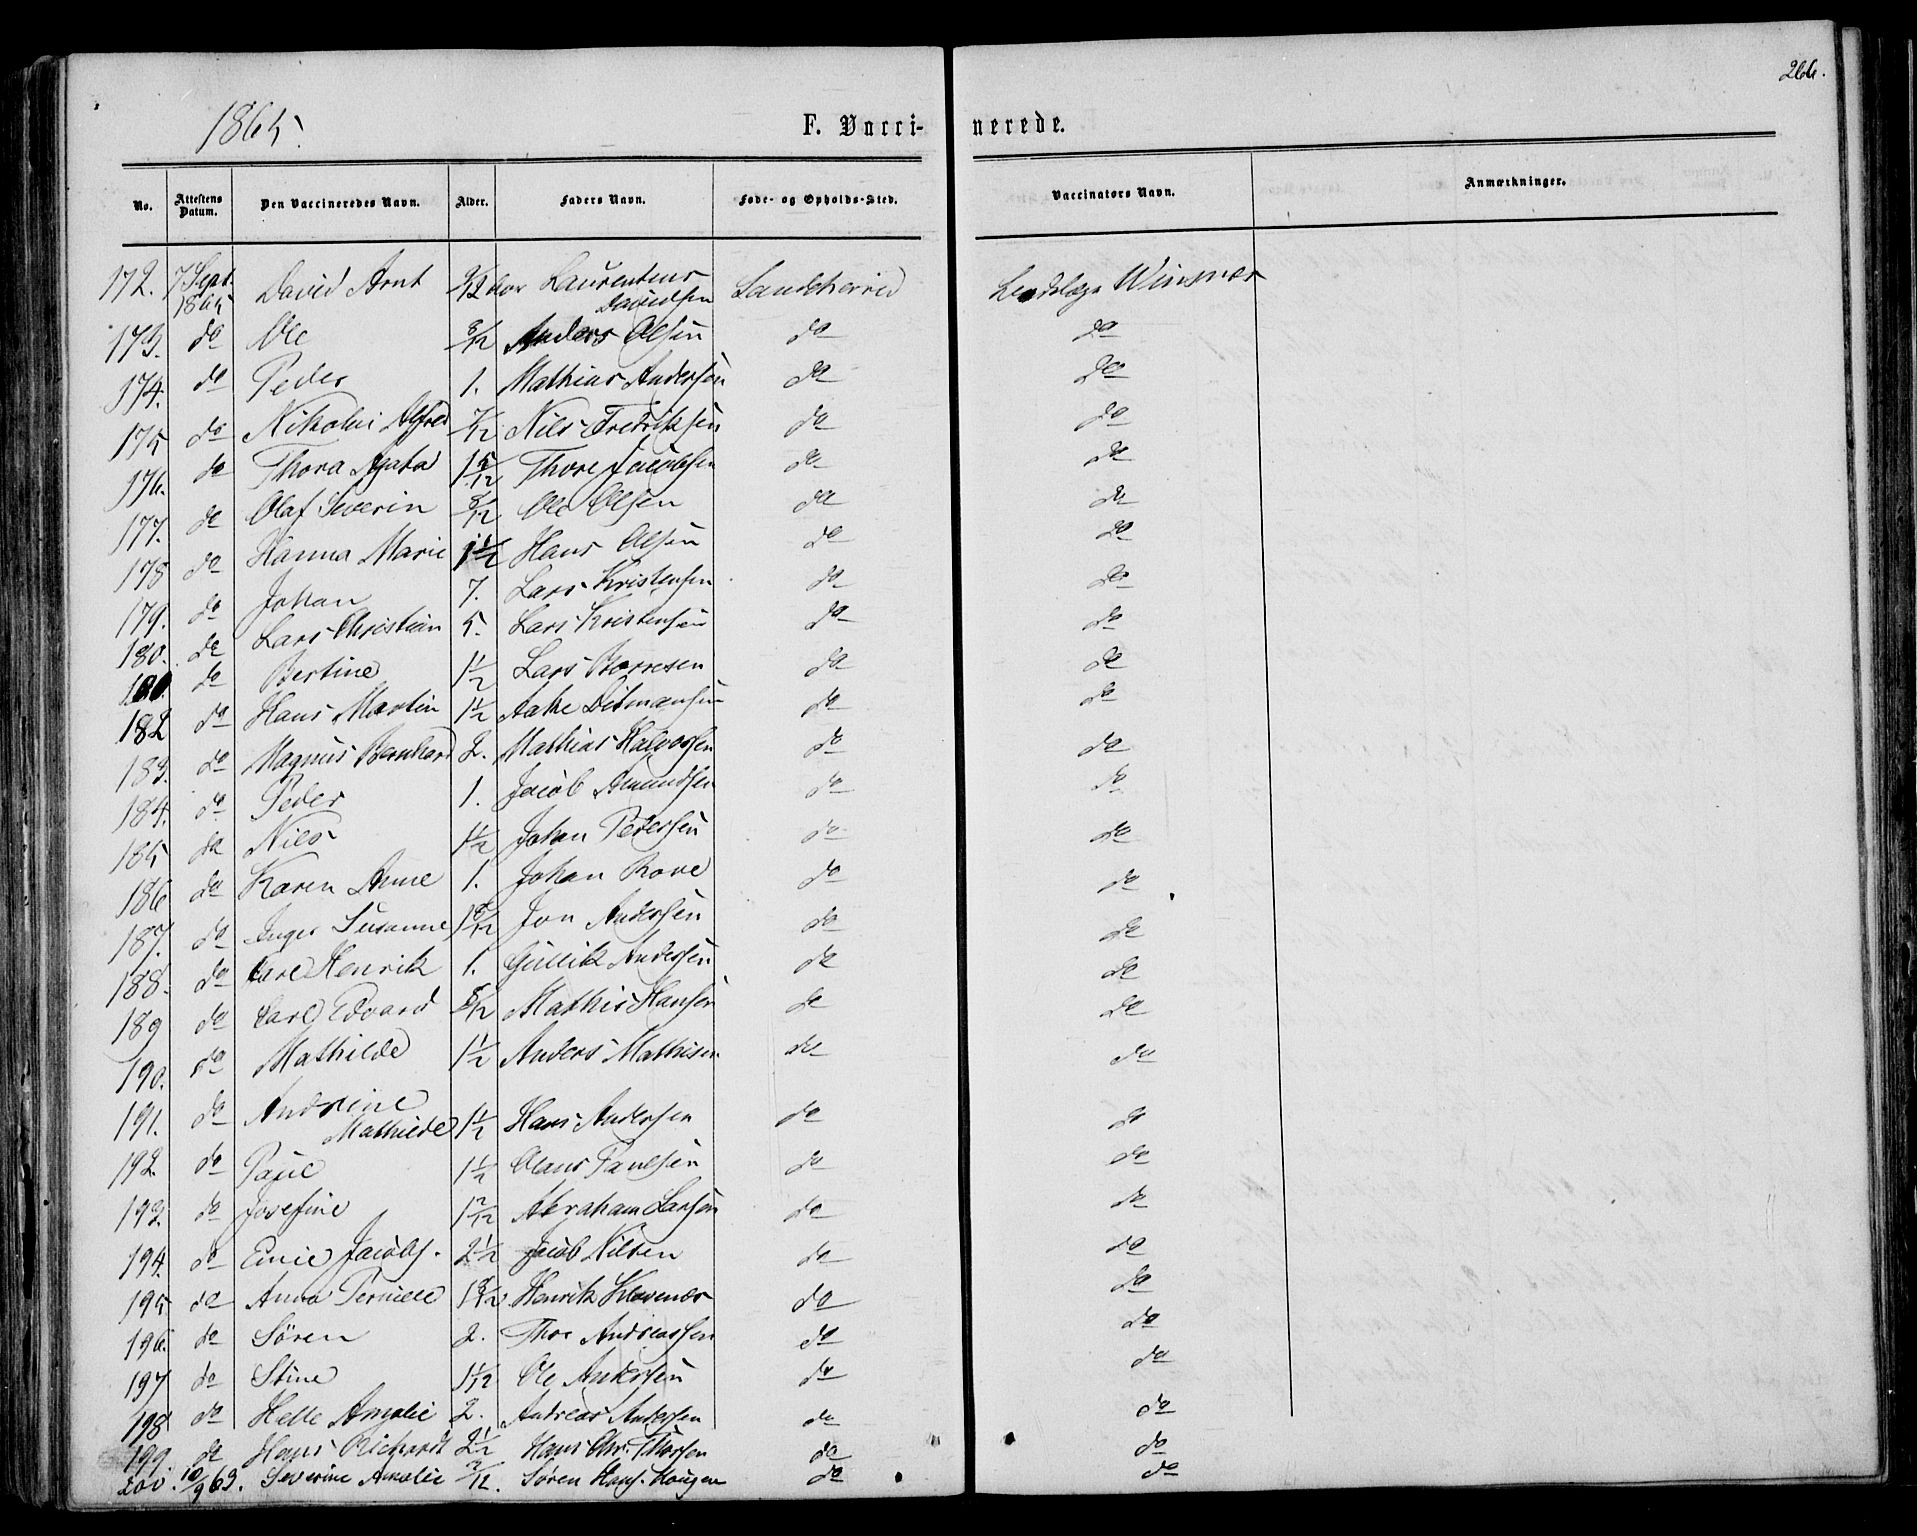 266.
1865.
F. Vacci- nerede.
No. Attestens Datum. Den Vaccineredes Navn. Alder. Faders Navn. Føde- og Opholds-Sted. Vaccinators Navn. Anmærkninger.
172. 7 Sept. 1865 David Arnt 9/12 Laurentius Davidsen Landeherred Wimmer
173. do Ole 8/12 Anders Olsen do do
174. do Peder 1. Mathias Andersen do do
175 do Nikolai Alfred 7/12 Nils Fredriksen do do
176. do Thora Agata 1 5/12 Thore Jacobsen do do
177. do Olaf Severin 8/12 Ole Olsen do do
178 do Hanna Marie 1 1/2 Hans Olsen do do
179. do Johan 7. Lars Kristensen do do
180. do Lars Christian 5. Lars Kristensen do do
181. do Bertine 1 1/2 Lars Borresen do do
182 do Hans Martin 1 1/2 Aake Ditmansen do do
183. do Magnus Bernhard 2. Mathias Halvorsen do do
184. do Peder 1. Jacob Amundsen do do
185 do Niels 1 1/2 Johan Pedersen do do
186 do Karen Anne 1. Johan Rove do do
187. do Inger Susanne 1 8/12 Jon Andersen do do
188. do Carl Henrik 1. Gullik Andersen do do
189 do Carl Edvard 8/12 Mathis Hansen do do
190. do Mathilde 1 1/2 Anders Mathisen do do
191. do Andrine Mathilde 1 1/2 Hans Andersen do do
192. do Paul 1 1/2 Olaus Paulsen do do
193. do Josefine 1 2/12 Abraham Larsen do do
194. do Emie Jacobs. 2 1/2 Jacob Nilsen do do
195 do Anna Pernille 1 9/12 Henrik Klavenæs do do
196. do Søren 2. Thor Andreassen do do
197 do Stine 1 1/12 Ole Andersen do do
198 do Helle Amalie 2. Andreas Andersen do do
199. do Hans Richardt 2 1/2 Hans Chr. Thorsen do do
200. 10/9 63. Severine Amalie 7/12. Søren Hans. Haugen do do